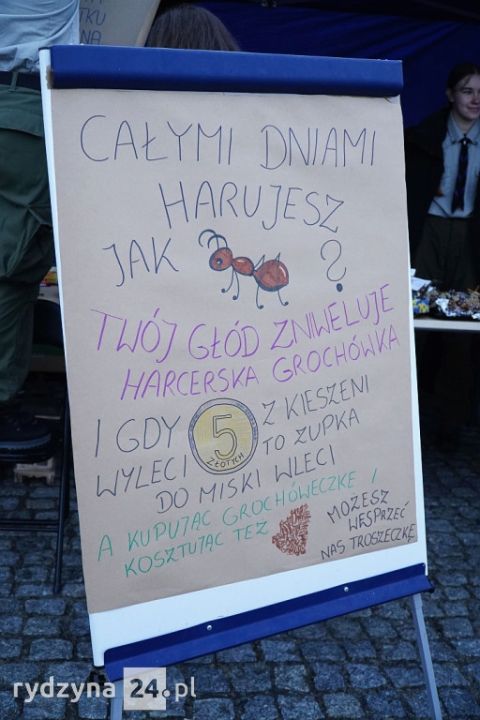 TKU
NA
CAŁYMI DNIAMI
HARUJESZ
JAK ?
TWÓJ GŁÓD ZNIWELUJE
HARCERSKA GROCHÓWKA
I GDY 5 ZŁOTYCH Z KIESZENI
WYLECI TO ZUPKA
DO MISKI WLECI
A KUPUJĄC GROCHÓWECZKĘ /
KOSZTUJĄC TEŻ
MOŻESZ
WESPRZEĆ
NAS TROSZECZKĘ
rydzyna24.pl